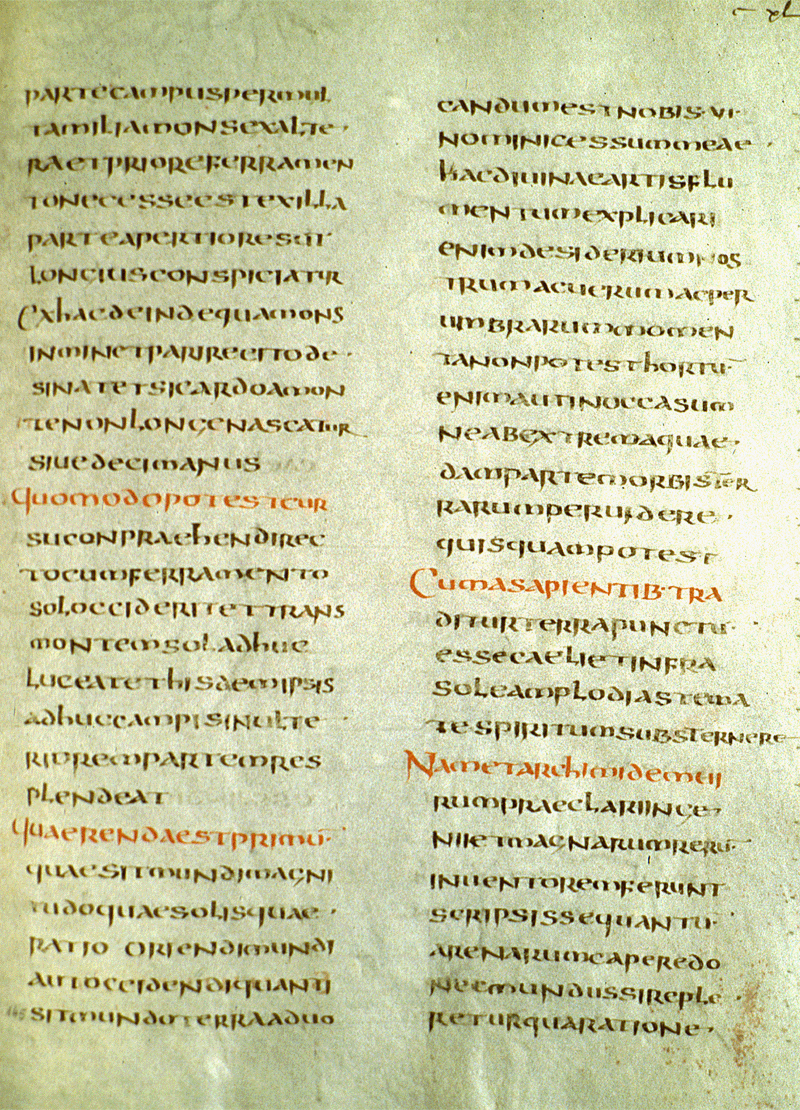 xl
PARTECAMPUSPERMUL
TAMILIAMONSEXALTE·
RAETPRIOREFERRAMEN
TONECESSEESTEXILLA
PARTEAPERTIORESOL
LONGIUSCONSPICIATUR
EXHACDEINDEQUAMONS
INMINETPARRECTODE·
SINATETSICARDOAMON
TENONLONGENASCATUR
SIUEDECIMANUS
QUOMODOPOTESTCUR
SUCONPRAEHENDIREC
TOCUMFERRAMENTO
SOLOCCIDERITETTRANS
MONTEMSOLADHUC
LUCEATETHISDEMIPSIS
ADHUCCAMPISINULTE·
RIOREMPARTEMRES
PLENDEAT
QUAERENDAESTPRIMŪ·
QUAESITMUNDIMAGNI
TUDOQUAESOLISQUAE·
RATIO ORIENDIMUNDI
AUTOCCIDENDIQUANTI
SITMUNDOTERRAADUO
CANDUMESTNOBIS·VI·
NOMINICESSUMMEAE·
HACDIUINAEARTISFLU
MENTUMEXPLICARI
ENIMDESIDERIUMNOS
TRUMACUERUMACPER
UMBRARUMMOMEN
TANONPOTESTHORTU·
ENIMAUTINOCCASUM
NEABEXTREMAQUAE·
DAMPARTEMORBISTER
RARUMPERUIDERE·
QUISQUAMPOTEST
CUMASAPIENTIB·TRA
DITURTERRAPUNCTU·
ESSECAELIETINFRA
SOLEAMPLODIASTEMA
TESPIRITUMSUBSTERNERE
NAMETARCHIMIDEMUI
RUMPRAECLARIINGE·
NIIETMAGNARUMRERŪ·
INUENTOREMFERUNT
SCRIPSISSEQUANTU·
ARENARUMCAPEREDO
NECMUNDUSSIREPLE
RETURQUARATIONE·